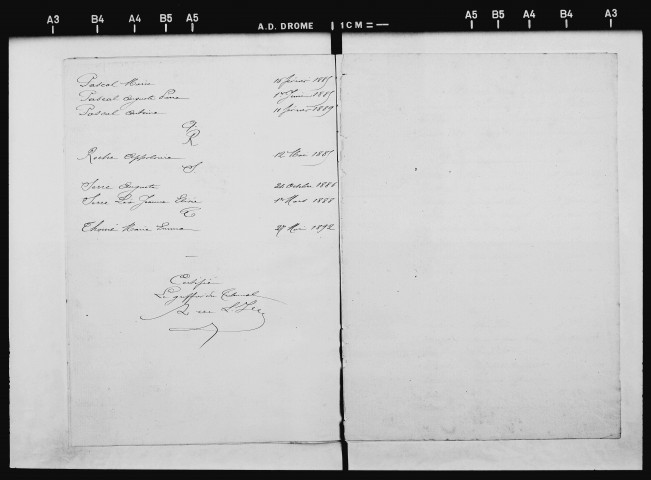 A3 B4 A4 B5 A5 A.D. DROME 1CM= A5 B5 A4 B4 A3
Pascal Marie 18 février 1885
Pascal Auguste 1er Juin 1885
Pascal 11 février 1889
Q
R
Roche Appolonie 12 Mai 1885
S
Serre Auguste 24 octobre 1886
Serre Léa Jeanne 1er Mars 1888
T
Thomé Marie 27 Mai 1892
Certifié
Le greffier du Tribunal